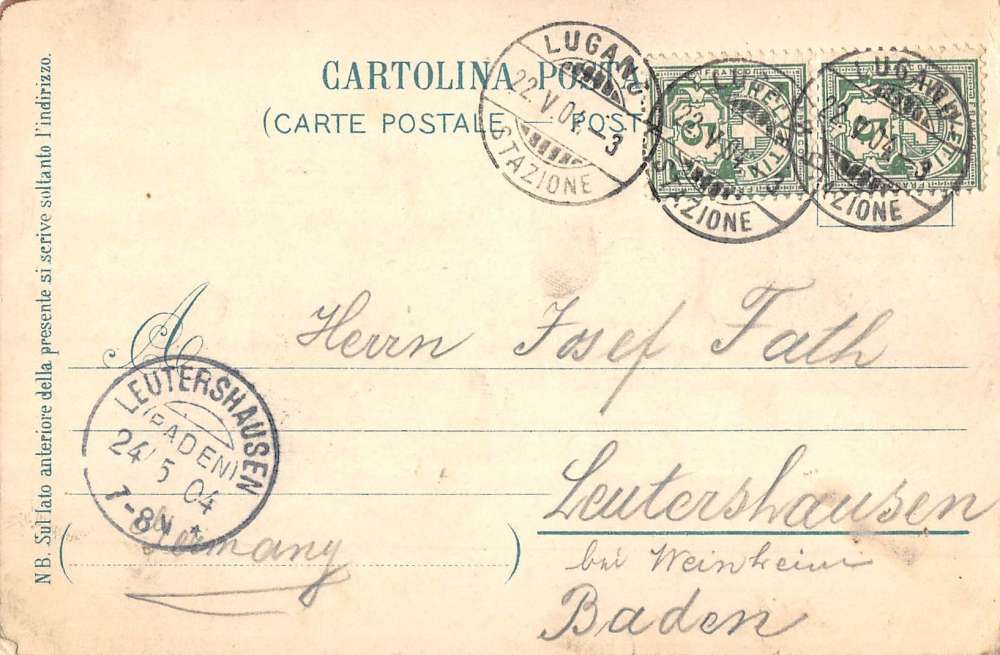 CARTOLINA POSTA
(CARTE POSTALE — POST
LUGANO
22.V.04.-3
STAZIONE
LUGANO
22.V.04.-3
STAZIONE
LUGANO
22.V.04.-3
STAZIONE
FRANCO HELVETIA
5
HELVETIA
5
NB. Sul lato anteriore della presente si scrive soltanto l'indirizzo.
A
Herrn Josef Fath
LEUTERSHAUSEN
(BADEN)
24/5 04
7-8N *
Leutershausen
Germany
bei Weinheim
Baden